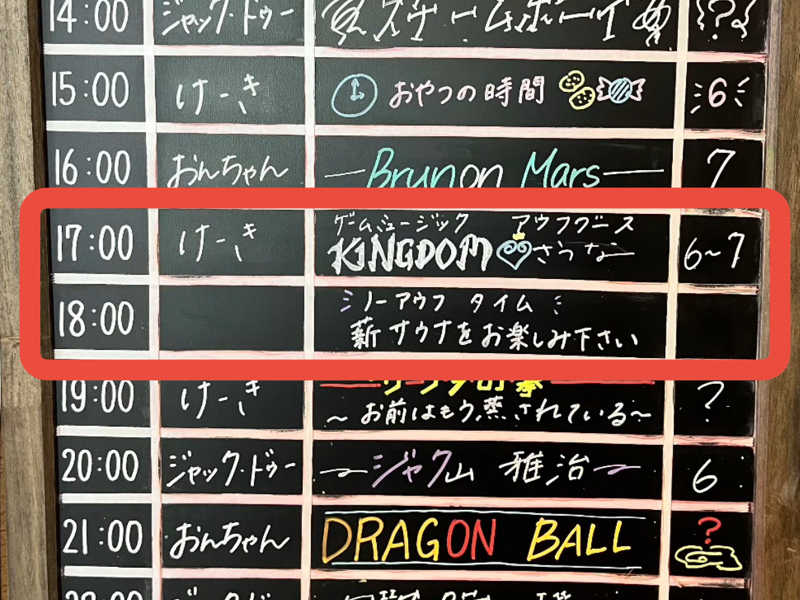 14:00 ジャック・ドゥー スチームボーイ ?
15:00 けーき おやつの時間 6
16:00 おんちゃん Brunon Mars 7
17:00 けーき ゲームミュージック アウフグース
KINGDOM さうなー 6~7
18:00 ノーアウフ タイム
薪サウナをお楽しみ下さい
19:00 けーき
~お前はもう、蒸されている~ ?
20:00 ジャック・ドゥー ジャク山 雅治 6
21:00 おんちゃん DRAGON BALL ?